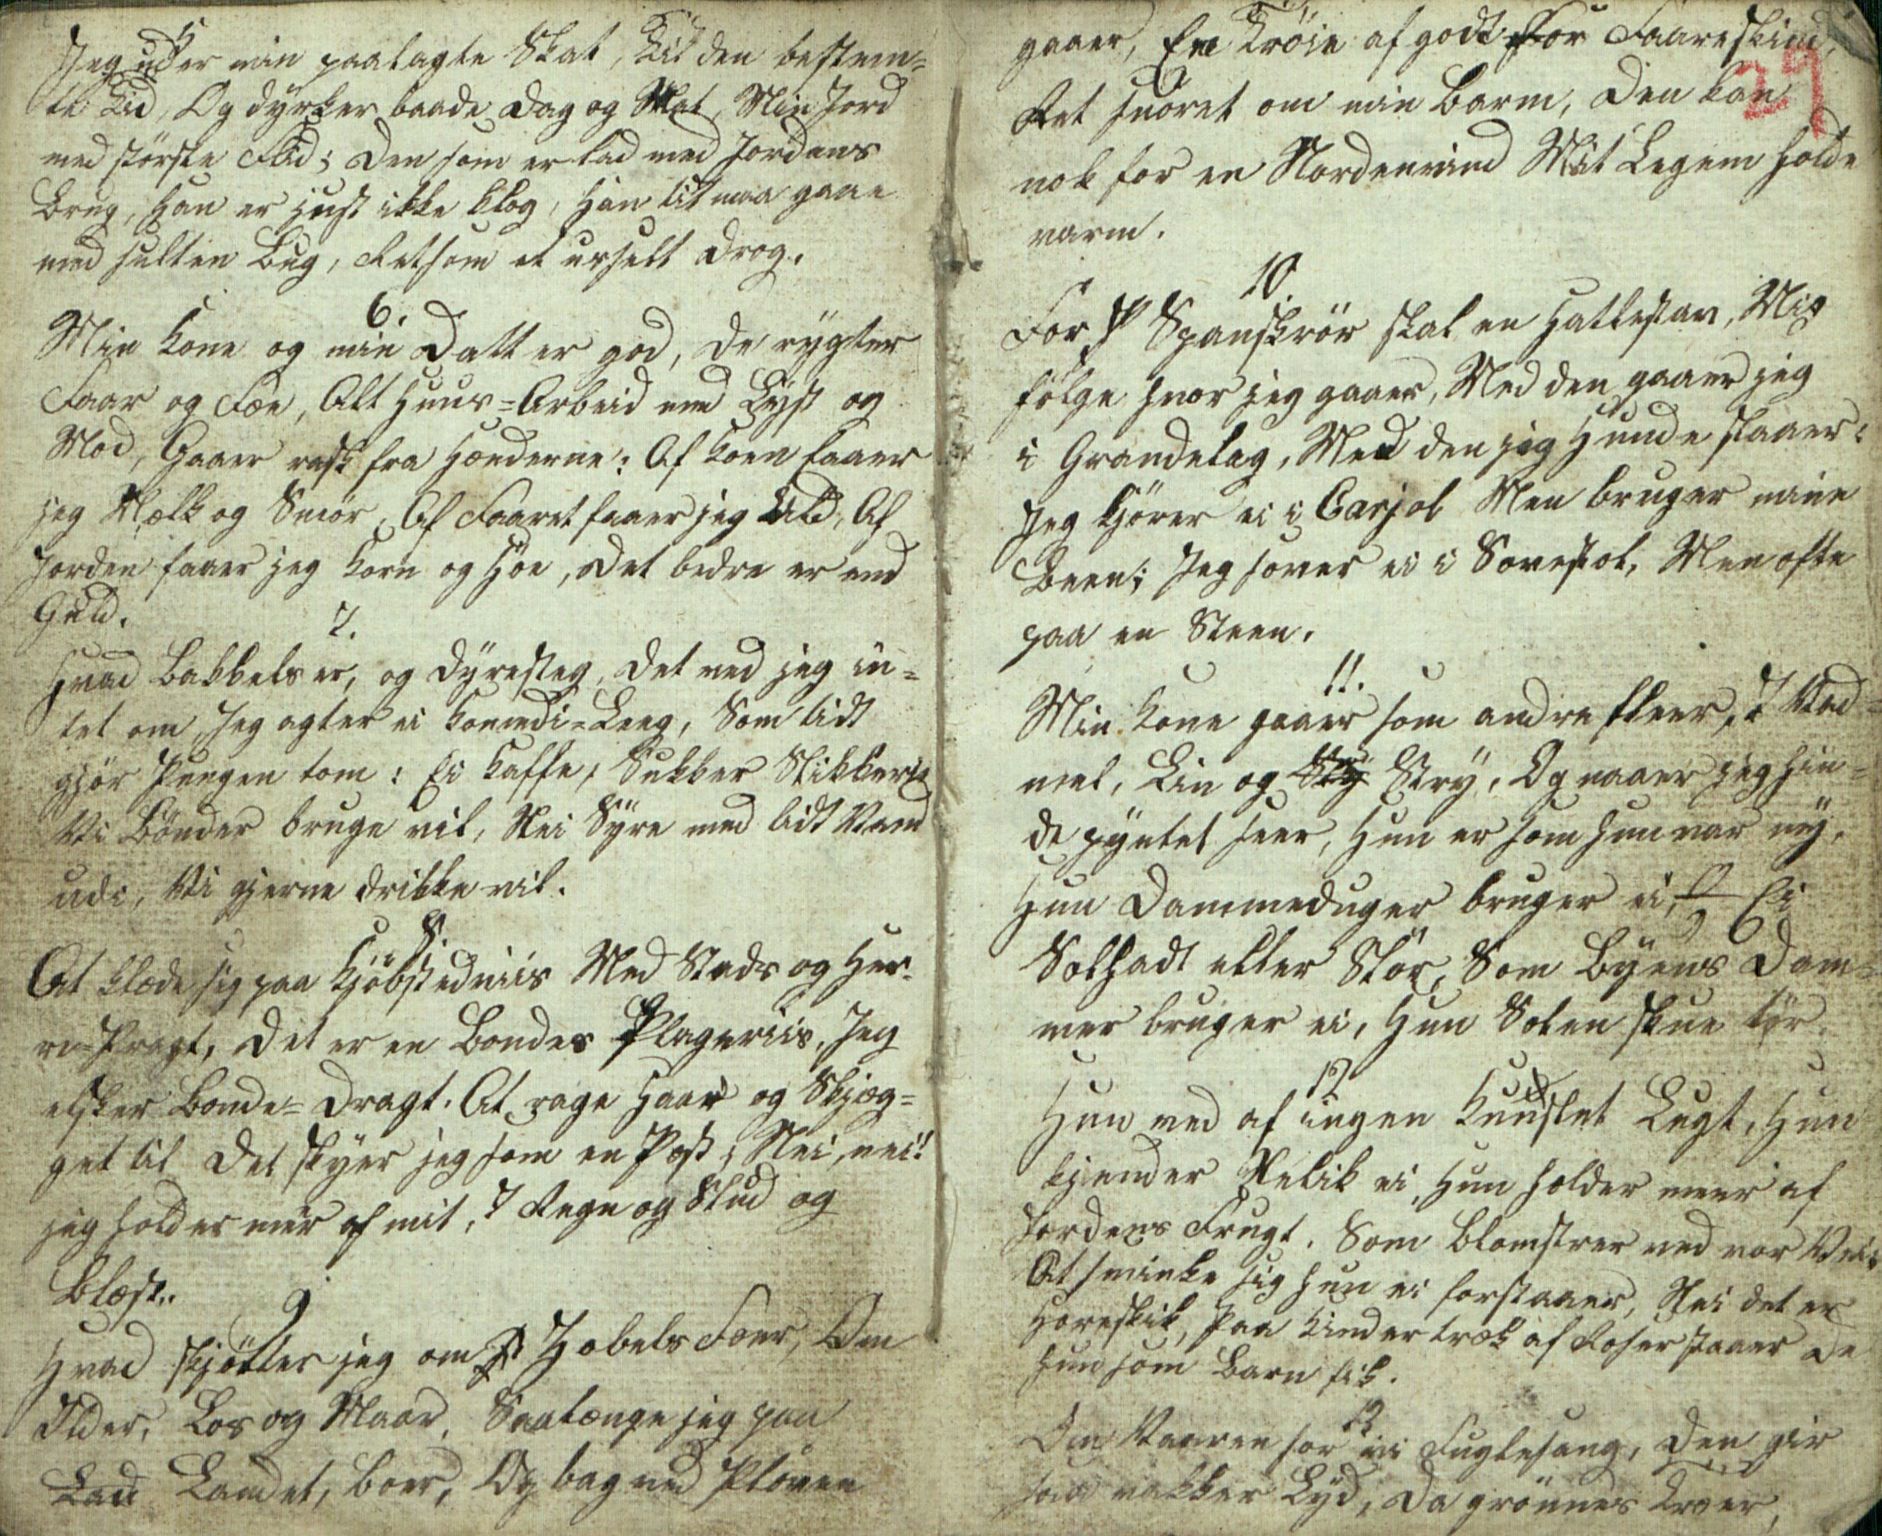 5
Jeg uder min paalagte Skat, Til den bestem=
te Tid, Og dÿrker baade Dag og Nat, Min Jord
med störste Flid; Den som er lad med Jordens
Brug, Han er just ikke klog, Han tit maa gaae
med sulten Bug, Retsom et usselt Drog.
6.
Min Kone og min Datter god, De rÿgter
Faar og Fæe, Alt Huus=Arbeid med Lÿst og
Mod, Gaaer rask fra Hænderne: Af Koen faaer
jeg Mælk og Smör, Af Faaret faaer jeg Uld, Af
Jorden faaer jeg Korn og Höe, Det bedre er end
Guld.
7.
Hvad Bakkels er, og Dÿresteg, Det ved jeg in=
tet om, Jeg agter ei Komedi=Leeg, Som tidt
gjör Pungen tom: Ei Kaffe, Sukker Slikkerie
Vi Bönder bruge vil, Nei Sÿre med lidt Vand
udi, Vi gjerne drikke vil.
8.
At klæde sig paa Kjöbstedviis Med Stads og Her=
re=Pragt, Det er en Bondes Plageriis, Jeg
elsker Bonde=Dragt. At rage Haar og Skjæg=
get til Det skÿer jeg som en Pest; Nei, nei!
jeg holder mér af mit, I Regn og Slud og
Blæst.
9
Hvad skjötter jeg om Zobels Foer, Om
Ilder, Los og Maar, Saalænge jeg paa
Landet, boer, Og bag ved Plóven
gaaer, En Tröie af godt For Faareskind,
Ret snöret om min Barm, Den kan
nok for en Nordenvind Mit Legem holde
varm.
10.
For Spanskrör skal en Hatlestav, Mig
fölge hvor jeg gaaer, Med den gaaer jeg
i Grandelag, Med den jeg Hunde slaaer:
Jeg kjörer ei i Carjol Men bruger mine
Been; Jeg sover ei i Sovestol, Men ofte
paa en Steen.
11.
Min Kone gaaer som andre fleer, I Vad=
mel, Lin og Strÿ, Og naaer jeg hin=
de pÿntet seer, Hun er som hun var nÿ,
Hun Dammeduger bruger ei, Ei
Solhadt eller Slör, Som Bÿens Dam=
mer bruger ei, Hun Solen skue tör.
12
Hun ved af ingen Kunstet Lugt, Hun
kjender Nelik ei, Hun holder meer af
Jordens Frugt, Som blomstrer ved vor Vei:
At sminke sig hun ei forstaaer, Nei det er
Horeskik, Paa Kinder træk af Roser staaer De
hun som Barn fik.
13
Om Vaaren hör vi Fuglesang, Den gir
saa vakker Lÿd, Da grönnes Træer,
29